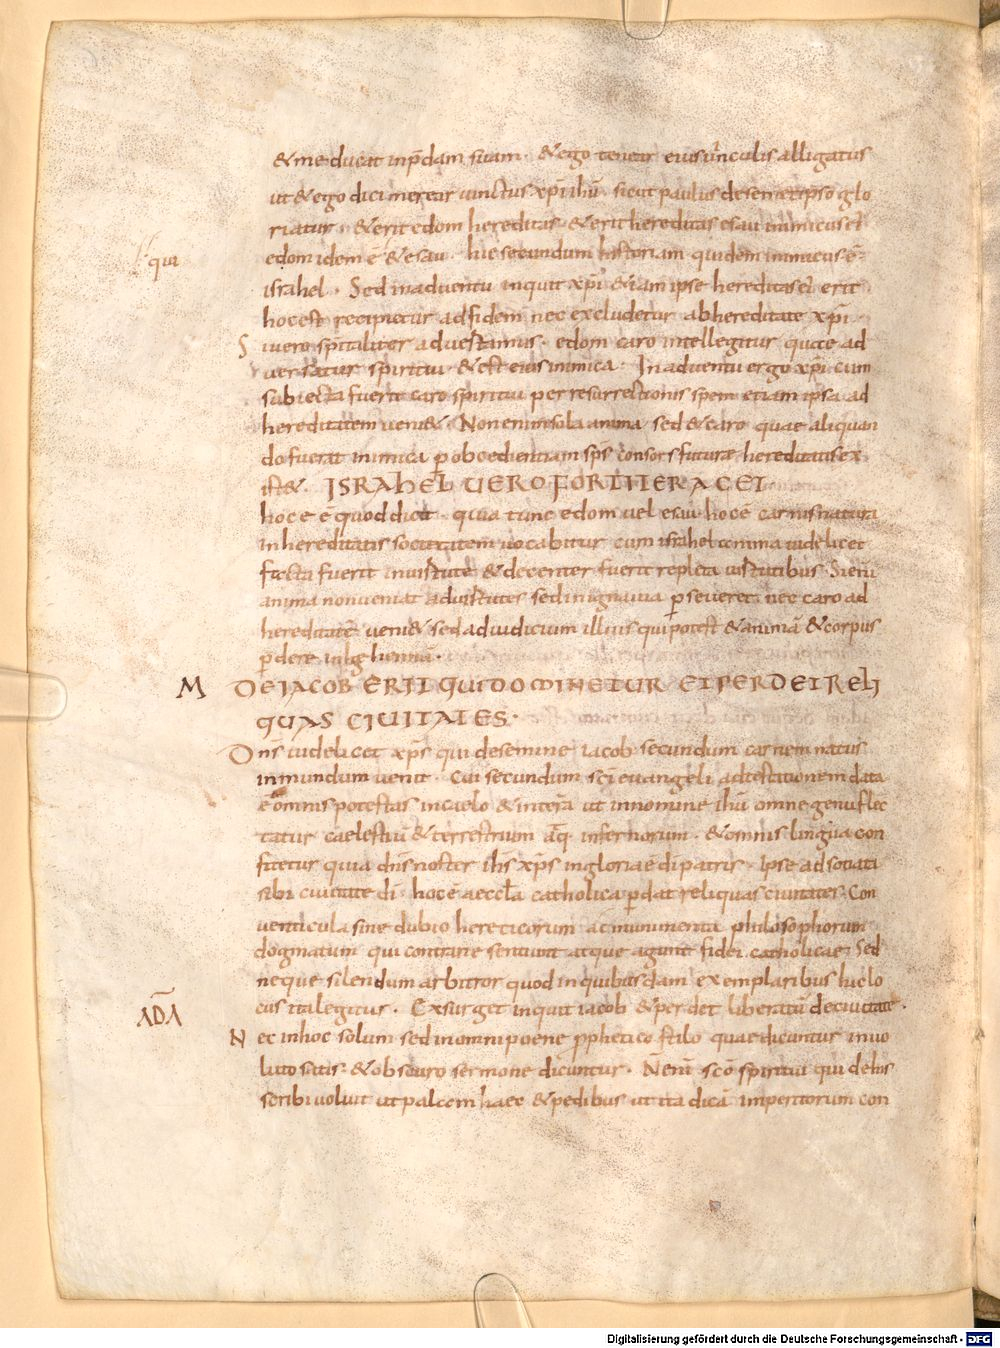 & me ducat inp̄dam suam · & ego tenear eius vinculis alligatus
ut & ego dici merear vinctus xp̄i ihū · sicut paulus desemetipso glo
riatur · & erit edom hereditas · & erit hereditas esau inimicus ei
edom idem ē & esau · hic secundum historiam quidem inimicus ē
qui
israhel · Sed inadventu inquit xp̄i etiam ipse hereditas ei erit
hocest recipietur adfidem nec excludetur abhereditate xp̄i ·
Si vero sp̄italiter advertamus · edom caro intellegitur quae ad
versatur spiritui · & est eius inimica · In adventu ergo xp̄i cum
subiecta fuerit caro spiritui per resurrectionis spem etiam ipsa ad
hereditatem veni& · Non enim sola anima sed & caro quae aliquan
do fuerat inimica p oboedientiam sp̄s consors futurae hereditatis ex
ist& · ISRAHEL VERO FORTITER AGET
hoc ē quod dicit · quia tunc edom vel esau hoc ē carnis natura
in hereditatis societatem vocabitur cum israhel anima videlicet
facta fuerit invirtute & decenter fuerit repleta virtutibus · Si enī
anima non veniat advirtutes sed in ignavia pseveret nec caro ad
hereditatē veni& sed ad iudicium illius qui potest & animā & corpus
pdere in gehennā ·
M DE IACOB ERIT QUI DOMINETUR ET PERDET RELI
QUAS CIVITATES ·
Dn̄s videlicet xp̄s qui desemine iacob secundum carnem natus
inmundum venit · Cui secundum sc̄i evangelii adtestationem data
ē omnis potestas incaelo & interra ut innomine ihū omne genu flec
tatur caelestiū & terrestrium atq; infernorum · & omnis lingua con
fitetur quia dn̄s noster ihs̄ xp̄s ingloria ē di patris · Ipse adsociata
sibi civitate di · hoc ē aeccl̄a catholica pdat reliquas civitates · Con
venticula sine dubio hereticorum ac munimenta philosophorum
dogmatum qui contrarie sentiunt atque agunt fidei catholicae · Sed
neque silendum arbitror quod inquibusdam exemplaribus hic lo
cus ita legitur · Exsurget inquit iacob & perdet liberatū decivitate ·
ADA
Nec inhoc solum sed inomni poene pphetico stilo quae dicuntur invo
luto satis & obscuro sermone dicuntur · Nenī scō spiritui qui de his
scribi voluit ut palam haec & pedibus ut ita dicā imperitorum con